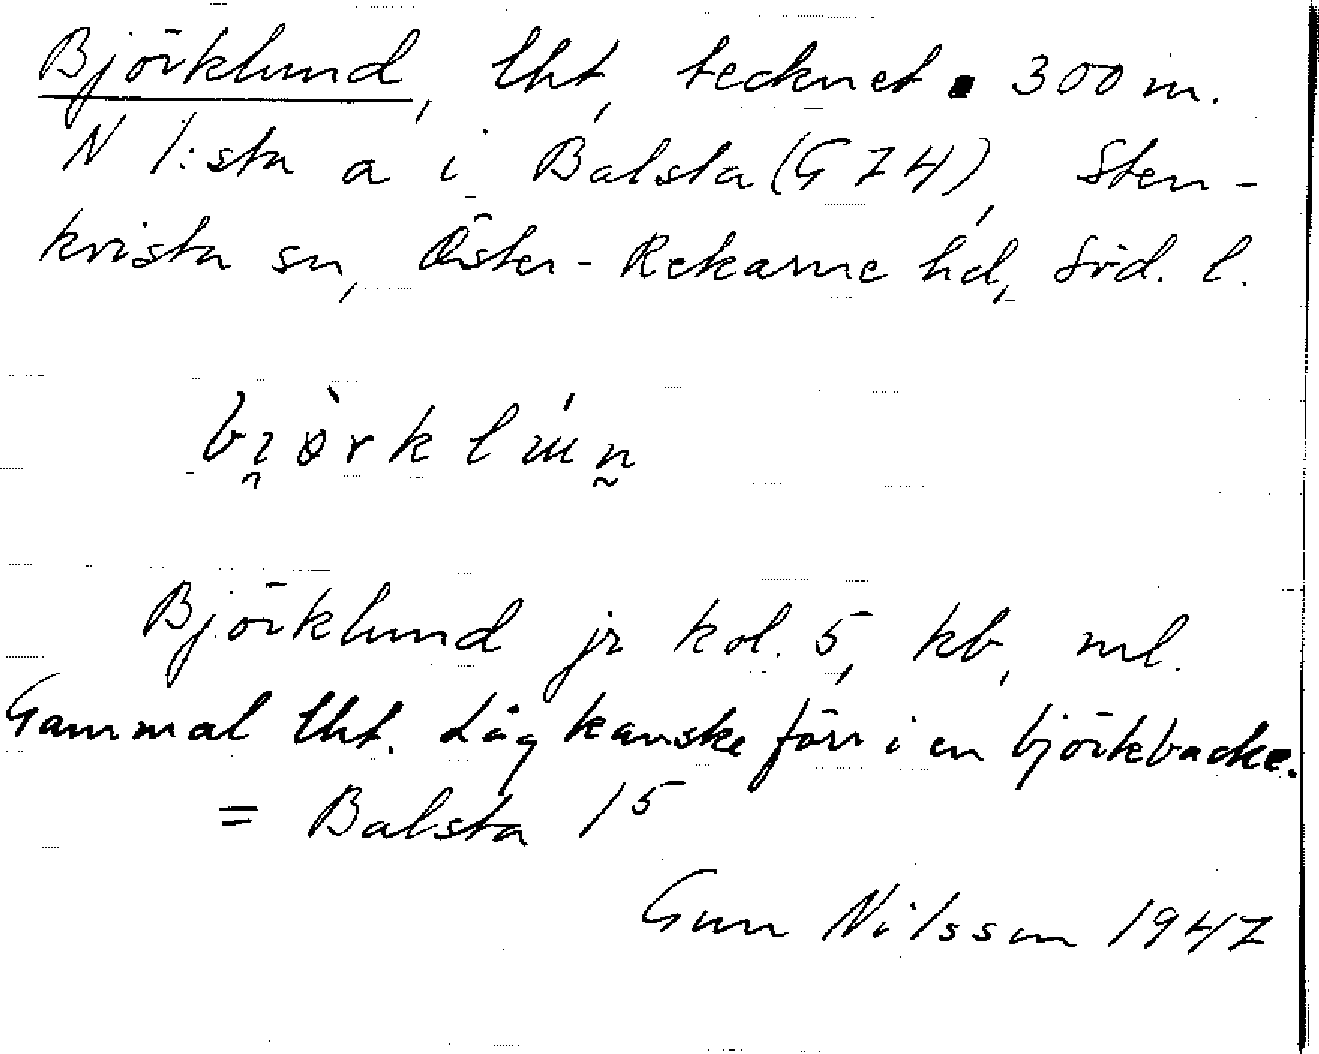 Björklund, lht, tecknet ▪ 300 m.
N 1:sta a i Balsta (G 74), Sten-
kvista sn, Öster-Rekarne hd, Söd. l.
bi̯ö̀rklún̰
Björklund jr kol. 5, kb, ml.
Gammal lht. Låg kanske förr i en björkbacke.
= Balsta 1⁵
Gun Nilsson 1947